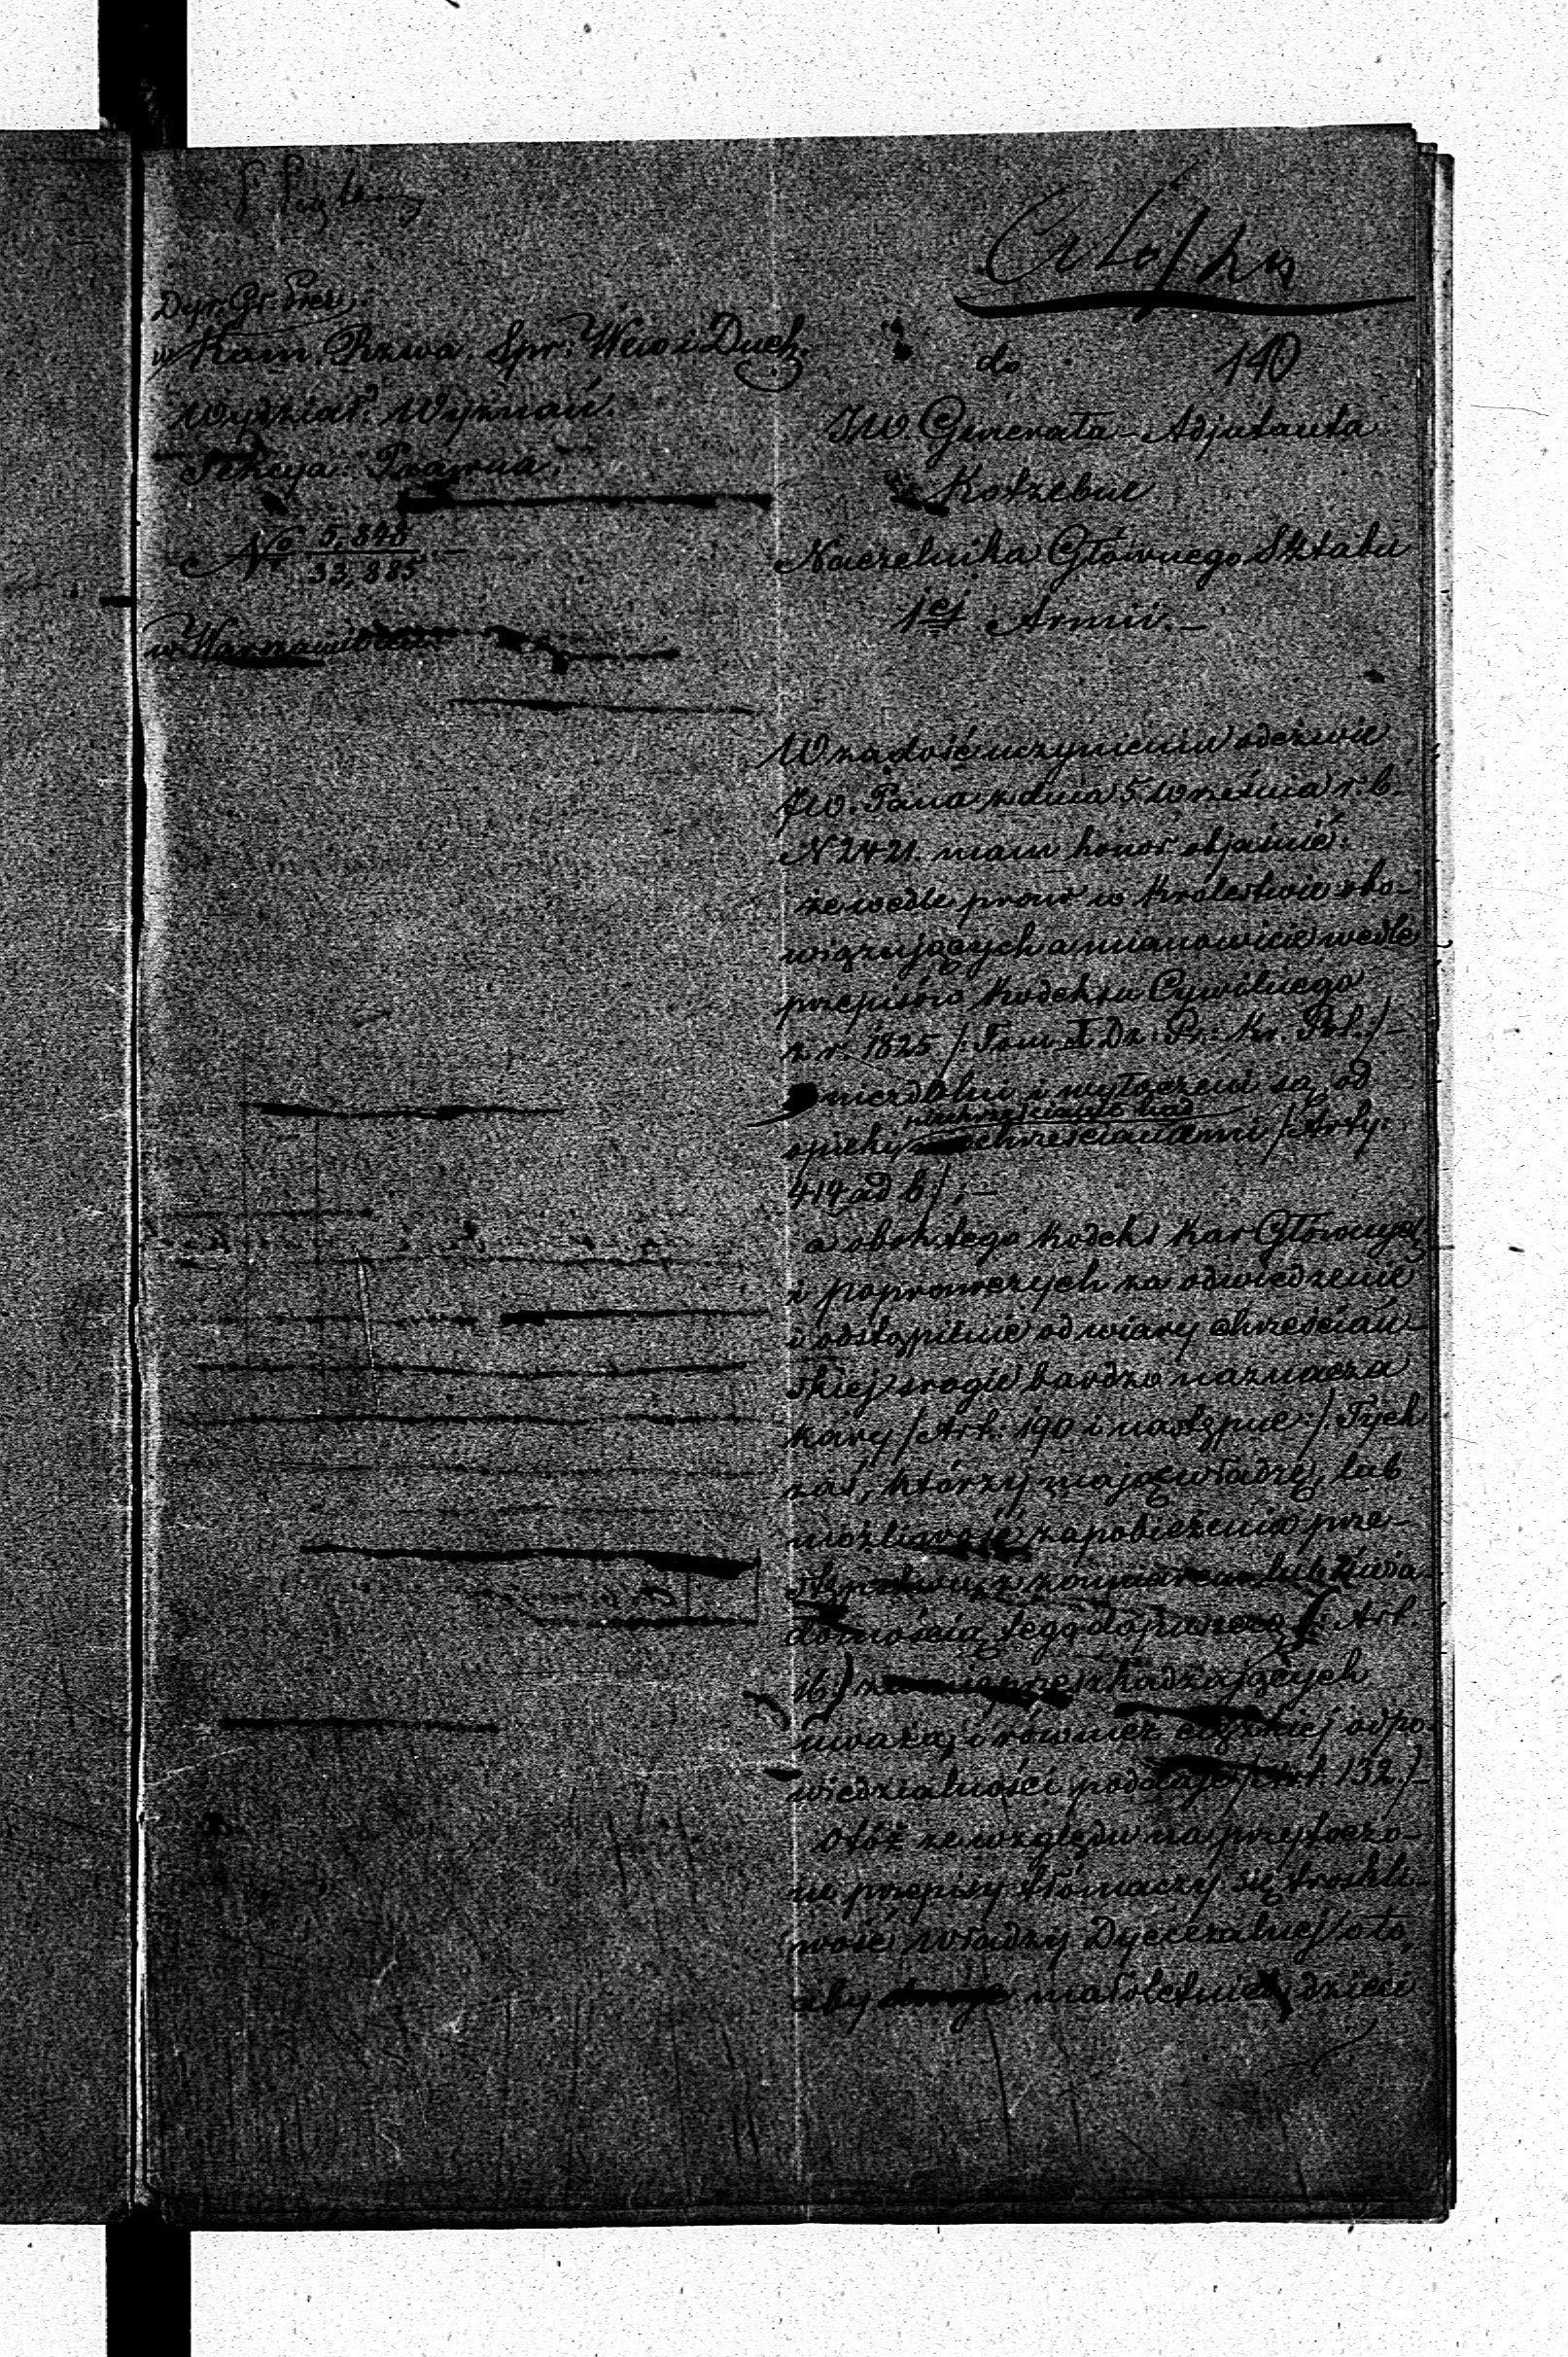 Dyr. Gł. Prez.
w Kom. Rzwa. Spr. Wew i Duch.
Wydział Wyznań.
Sekcya Prawna.
No 5,848
33,885
w Warszawie
do
140
JW Generała-Adjutanta
Kotzebue
Naczelnika Głównego Sztabu
1ej Armii.
W zadość uczynieniu odezwie
JW. Pana z dnia 5 Września r. b.
N 2421. mam honor objaśnić:
że wedle praw w Królestwie obo-
wiązujących a mianowicie wedle
przepisów Kodeksu Cywilnego
z r. 1825 /: Tom X. Dz: Pr: Kr. Pol. /-
niezdolni i wyłączeni są od
opieki niechrześcianie nad
chrześcianami /: Arty.
414 ad b /;-
a obok tego Kodeks Kar Głównych
i poprawczych za odwiedzenie
i odstąpienie od wiary chrześciań-
skiej srogie bardzo naznacza
kary /: Art: 190 i następne :/. Tych
zaś, którzy mając władzę, lub
możliwość zapobieżenia prze-
stępstwu, z zamiarem lub z wia-
domością tego dopuszczą /: Art
16)
uważa, i również ciężkiej odpo-
wiedzialności poddaje /: Art. 132. /-
Otóż ze względu na przytoczo-
ne przepisy tłómaczy się troskli-
wość Władzy Dyecezalnej o to,
aby małoletnie dzieci